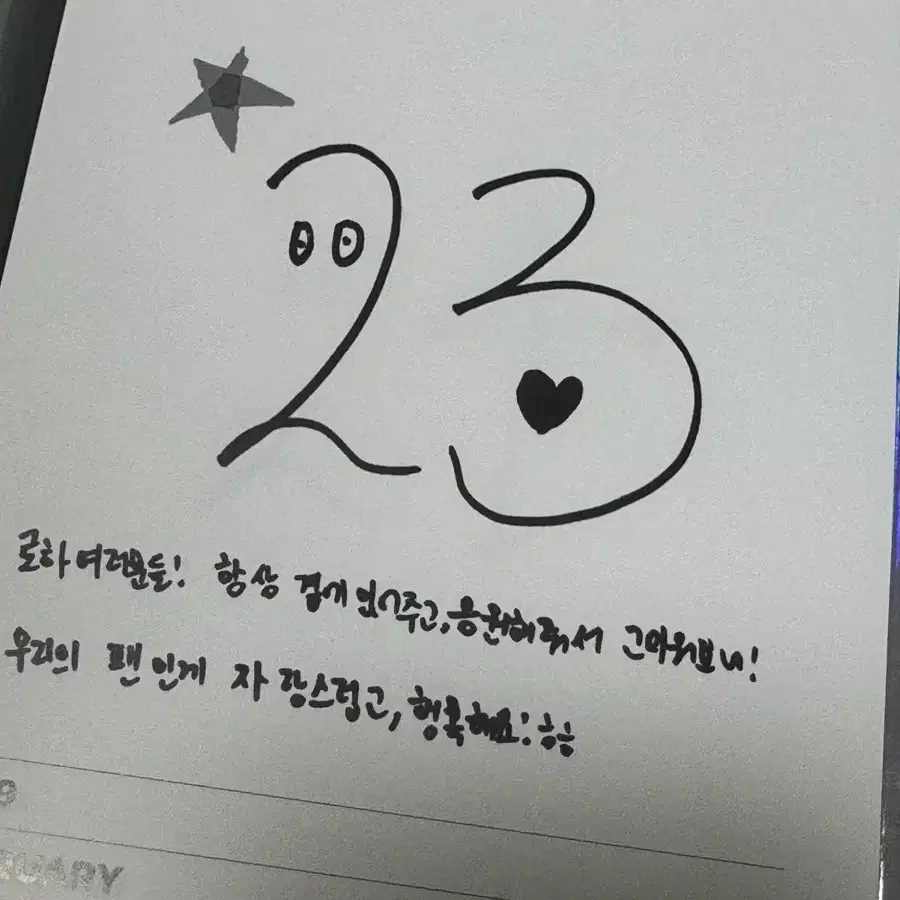 23
로하 여러분들! 항상 곁에 있어주고, 응원해줘서 고마워보니!
우리의 팬인게 자랑스럽고, 행복해요! ㅎㅎ
9
RUARY